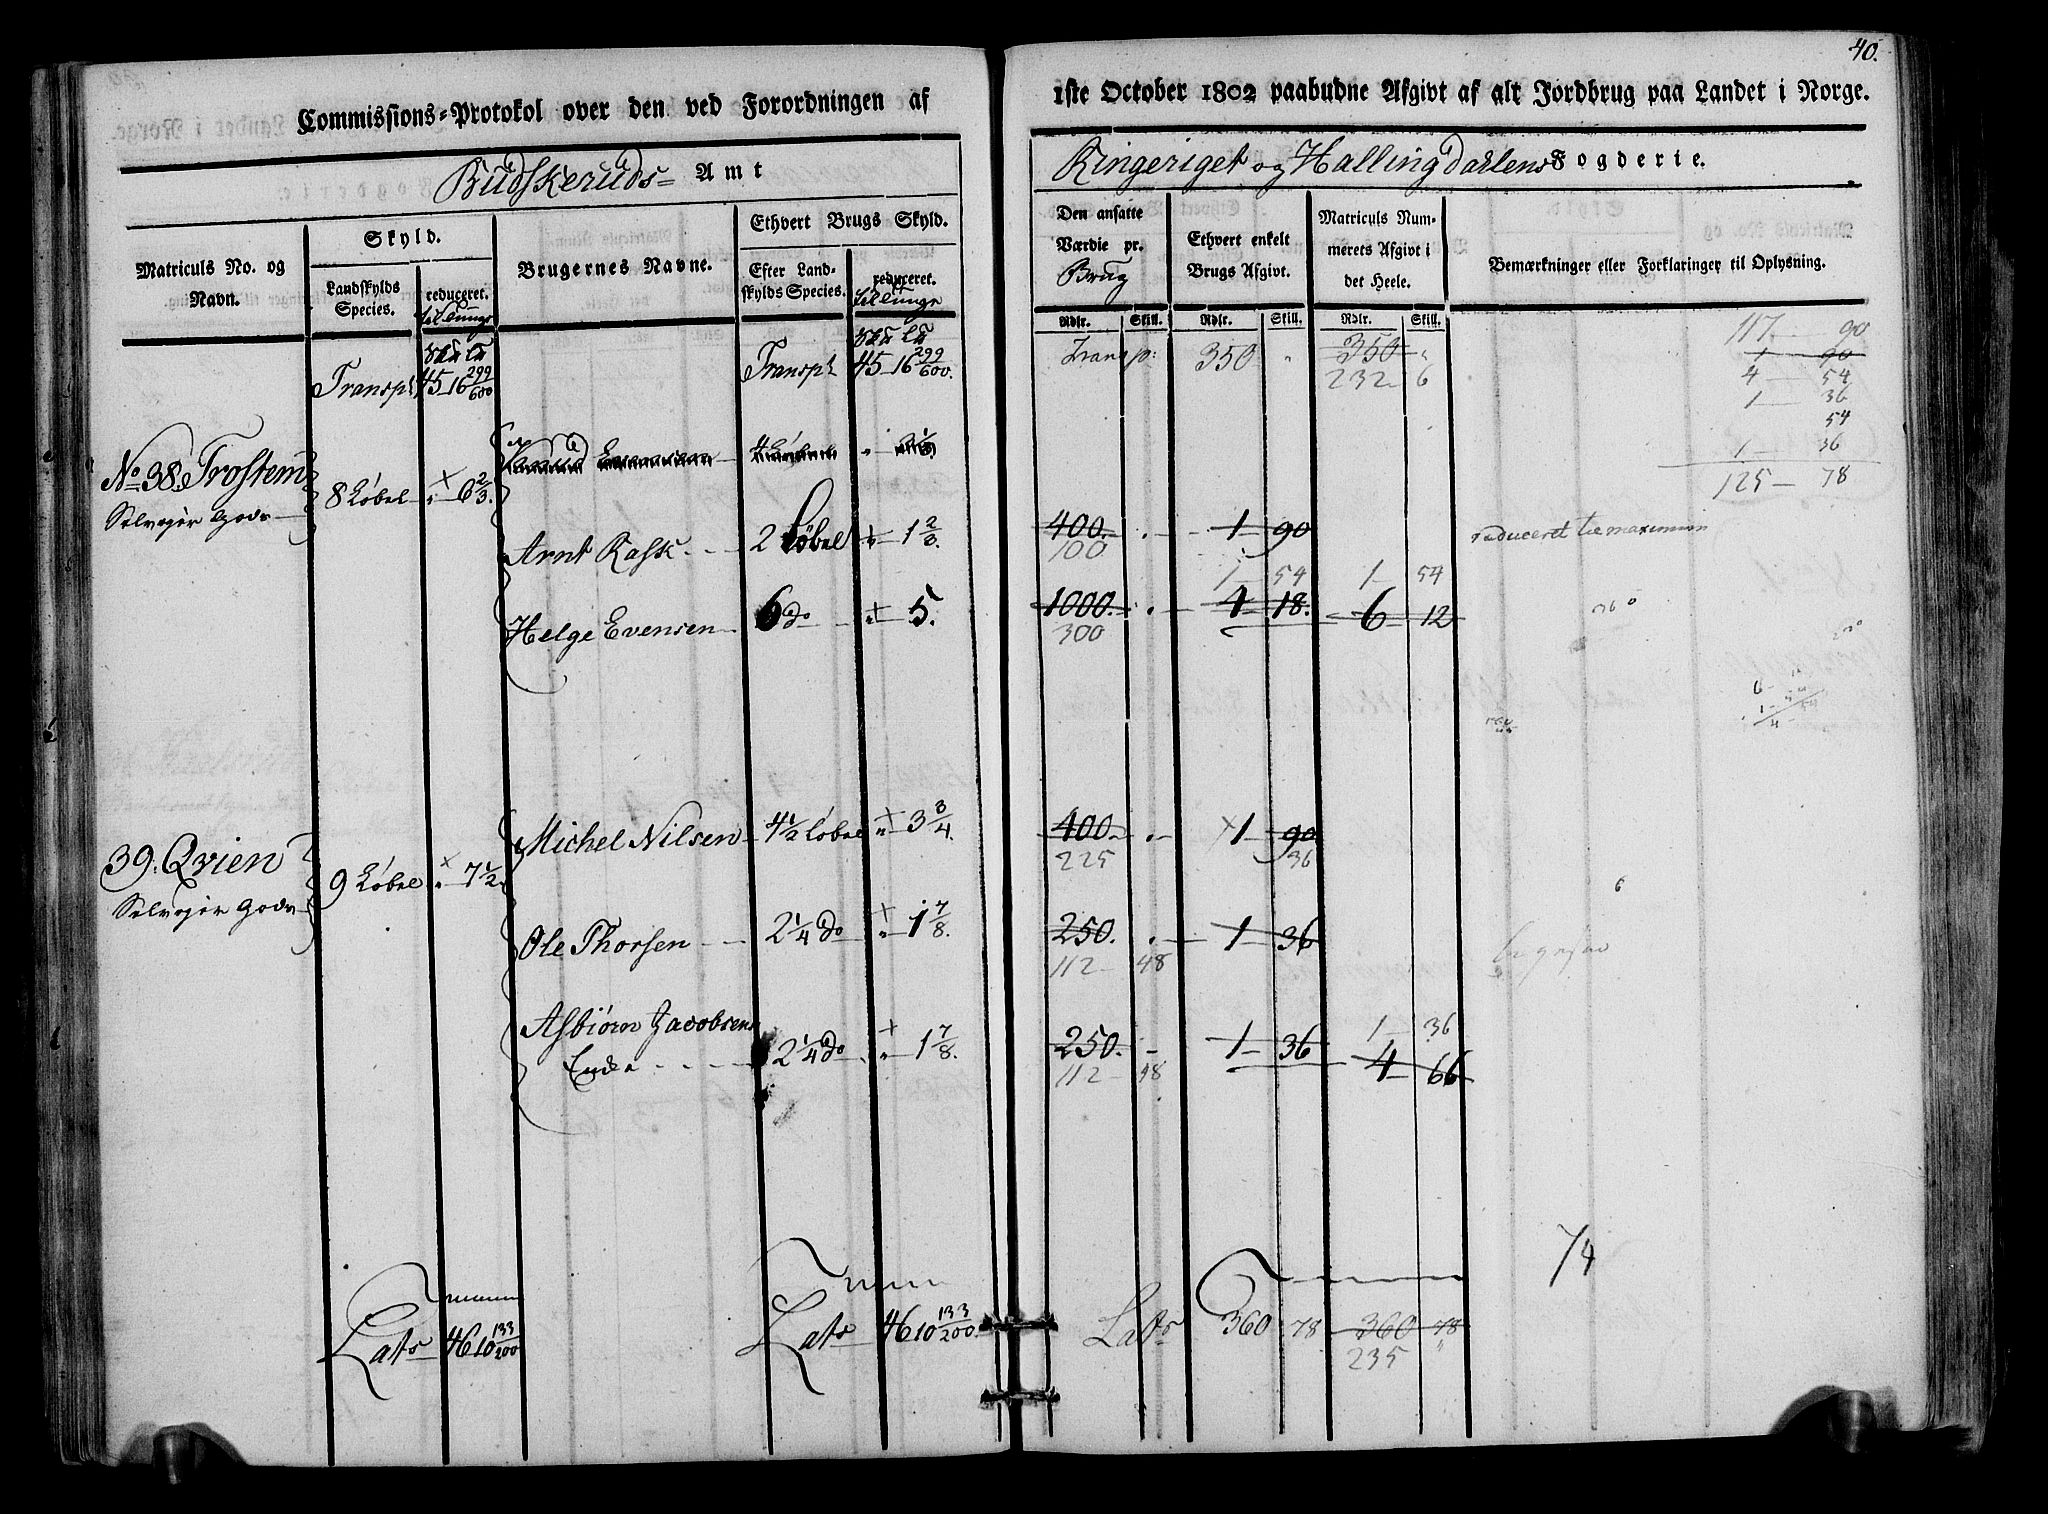 40.
Commissions-Protokol over den ved Forordningen af
1ste October 1802 paabudne Afgivt af alt Jordbrug paa Landet i Norge.
Budskeruds Amt
Ringeriget og Hallingdarlens Fogderie.
Matriculs No. og Navn.
Skyld.
Landskylds Species.
reduceret.
Brugernes Navne.
Ethvert Brugs Skyld.
Efter Landskylds Species.
reduceret.
Den ansatte Værdie pr. Brug
Ethvert enkelt Brugs Afgivt.
Matriculs Nummerets Afgivt i det Heele.
Bemærkninger eller Forklaringer til Oplysning.
Rdlr. Skill. Rdlr. Skill. Rdlr. Skill.
Transpt 45 16 299/600
Transpt 45 16 299/600.
Transp: 350 " 350 "
232 6
117 90
1 90
4 54
1 36
54
1 36
125 78
No 38. Trostem 8 Løbel " 6 2/3.
Selveier Gods
Knud Evensen 4 " 3 1/3
Arnt Rask 2 Løbel " 1 2/3. 400. 1 90 reduceret til maximum
100
1 54 1 54
Helge Evensen 6 do " 5. 1000. 4 18. 6 12
300
39. Qvien 9 Løbel " 7 1/2
Selveier Gods
Michel Nilsen 4 1/2 Løbel " 3 3/4. 400 1 90
225 36
Ole Thorsen 2 1/4 do " 1 7/8. 250. 1 36
112 48
Asbiørn Jacobsens
1 36
Enke 2 1/4 do " 1 7/8. 250. 1 36 4 66
112 48
74
Lats 46 10 133/200
Lats 46 10 133/200.
Lats 360 78 360 78
235 "